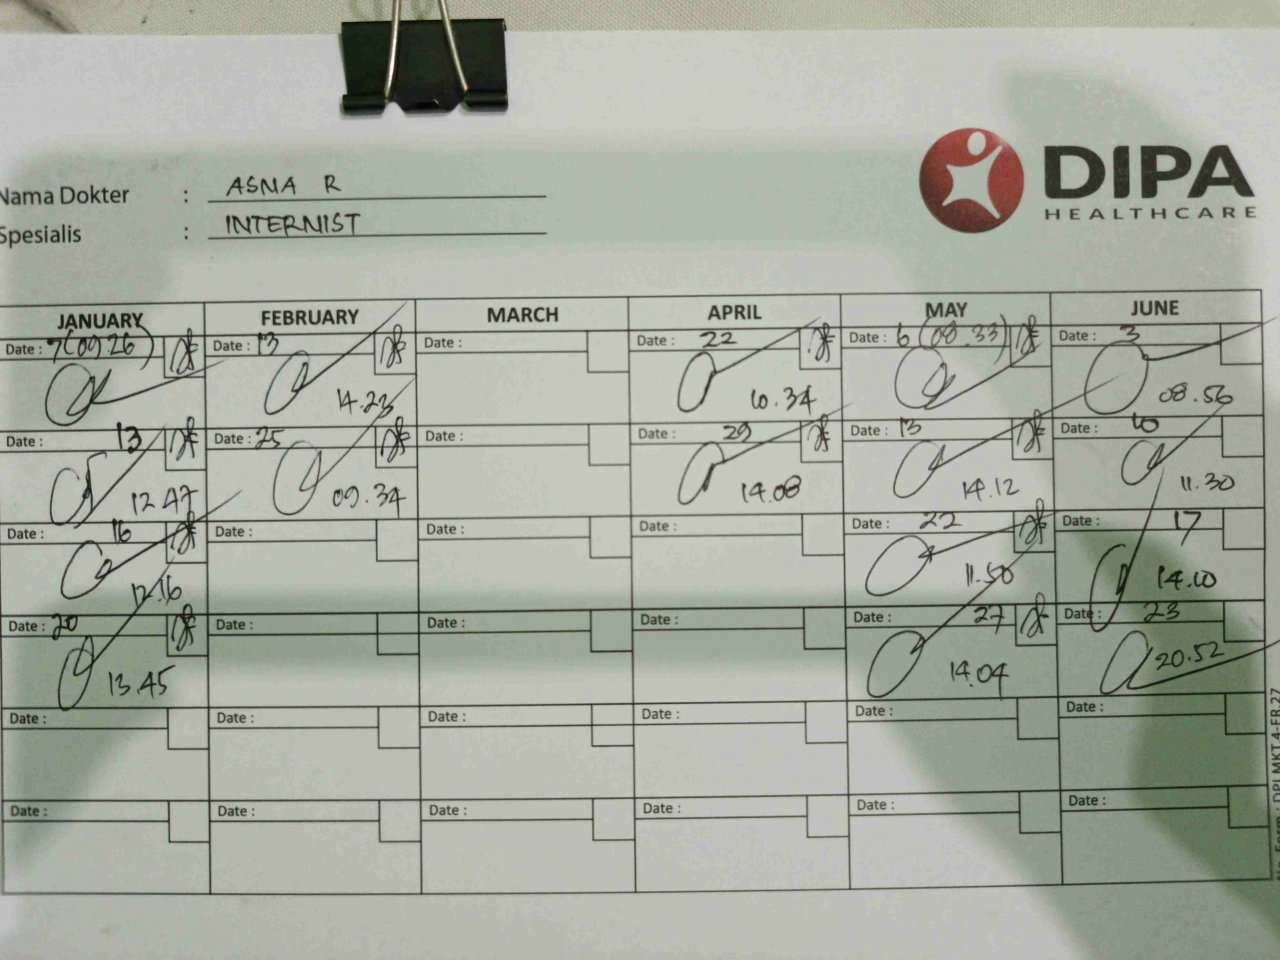 DIPA
HEALTHCARE
Nama Dokter : ASNA R
Spesialis : INTERNIST
JANUARY FEBRUARY MARCH APRIL MAY JUNE
Date : 7 (09.26) Date : 13 Date : Date : 22 Date : 6 (08.33) Date : 3
14.23 10.34 08.56
Date : 13 Date : 25 Date : Date : 29 Date : 13 Date : 10
12.47 09.34 14.08 14.12 11.30
Date : 16 Date : Date : Date : Date : 22 Date : 17
12.16 11.50 14.10
Date : 20 Date : Date : Date : Date : 27 Date : 23
13.45 14.04 20.52
Date : Date : Date : Date : Date : Date :
Date : Date : Date : Date : Date : Date :